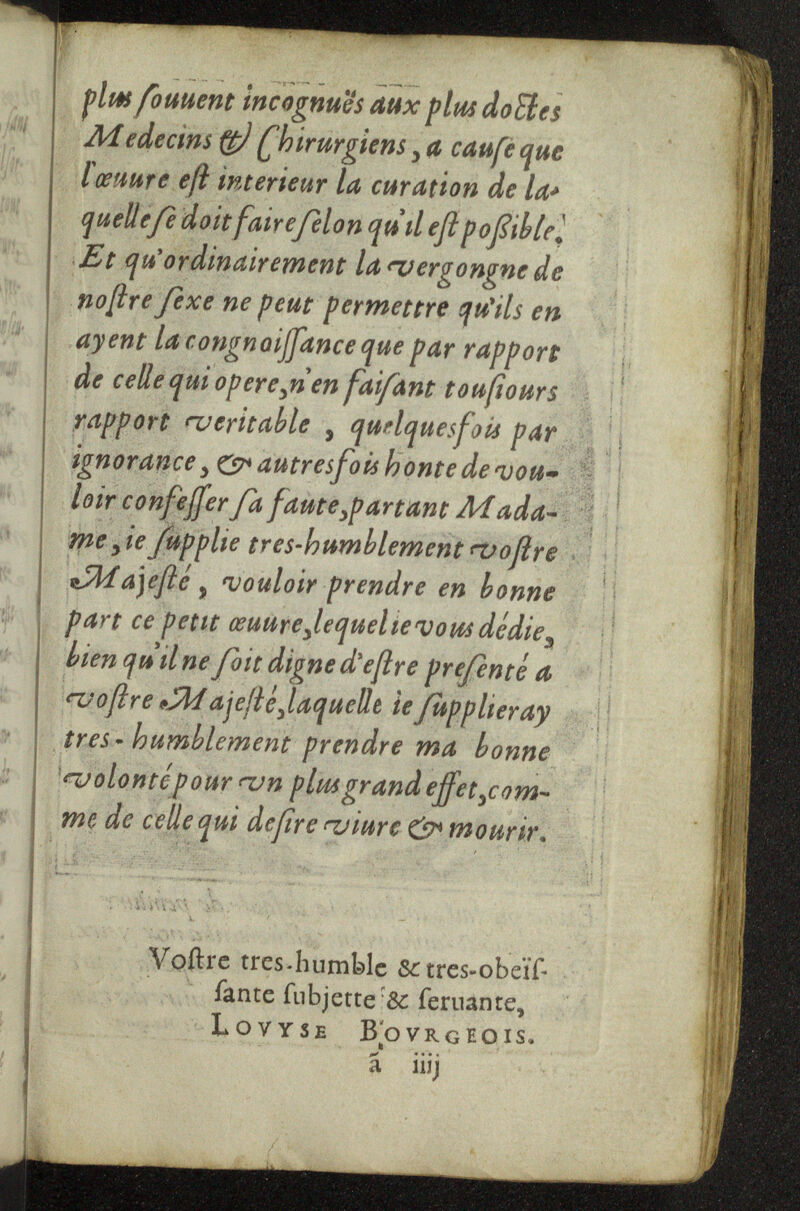 plus ſouuent incognuës aux plus doctes
Medecins & Chirurgiens, a cauſe que
l'œuure eſt interieur la curation de la-
quelle ſe doit faire ſelon qu'il eſt poßible.
Et qu'ordinairement la vergongne de
noſtre ſexe ne peut permettre qu'ils en
ayent la congnoiſſance que par rapport
de celle qui opere, n'en faiſant touſiours
rapport veritable , quelquesfois par
ignorance, & autresfois honte de vou-
loir confeſſer ſa faute, partant Mada-
me, ie ſupplie tres-humblement voſtre
Majeſté, vouloir prendre en bonne
part ce petit œuure, lequel ie vous dédie,
bien qu'il ne ſoit digne d'eſtre preſenté a
voſtre Majeſté, laquelle ie ſupplieray
tres-humblement prendre ma bonne
volonté pour vn plus grand effet, com-
me de celle qui deſire viure & mourir.
Voſtre tres-humble & tres-obeïſ-
ſante ſubjette & ſeruante,
LOVYSE BOVRGEOIS.
ã iiij